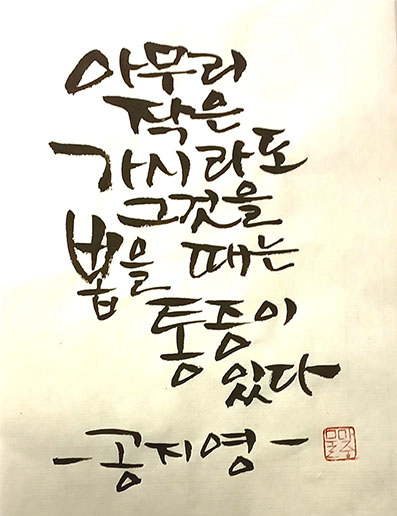 아무리
작은
가시라도
그것을
뽑을 때는
통증이
있다
-공지영-